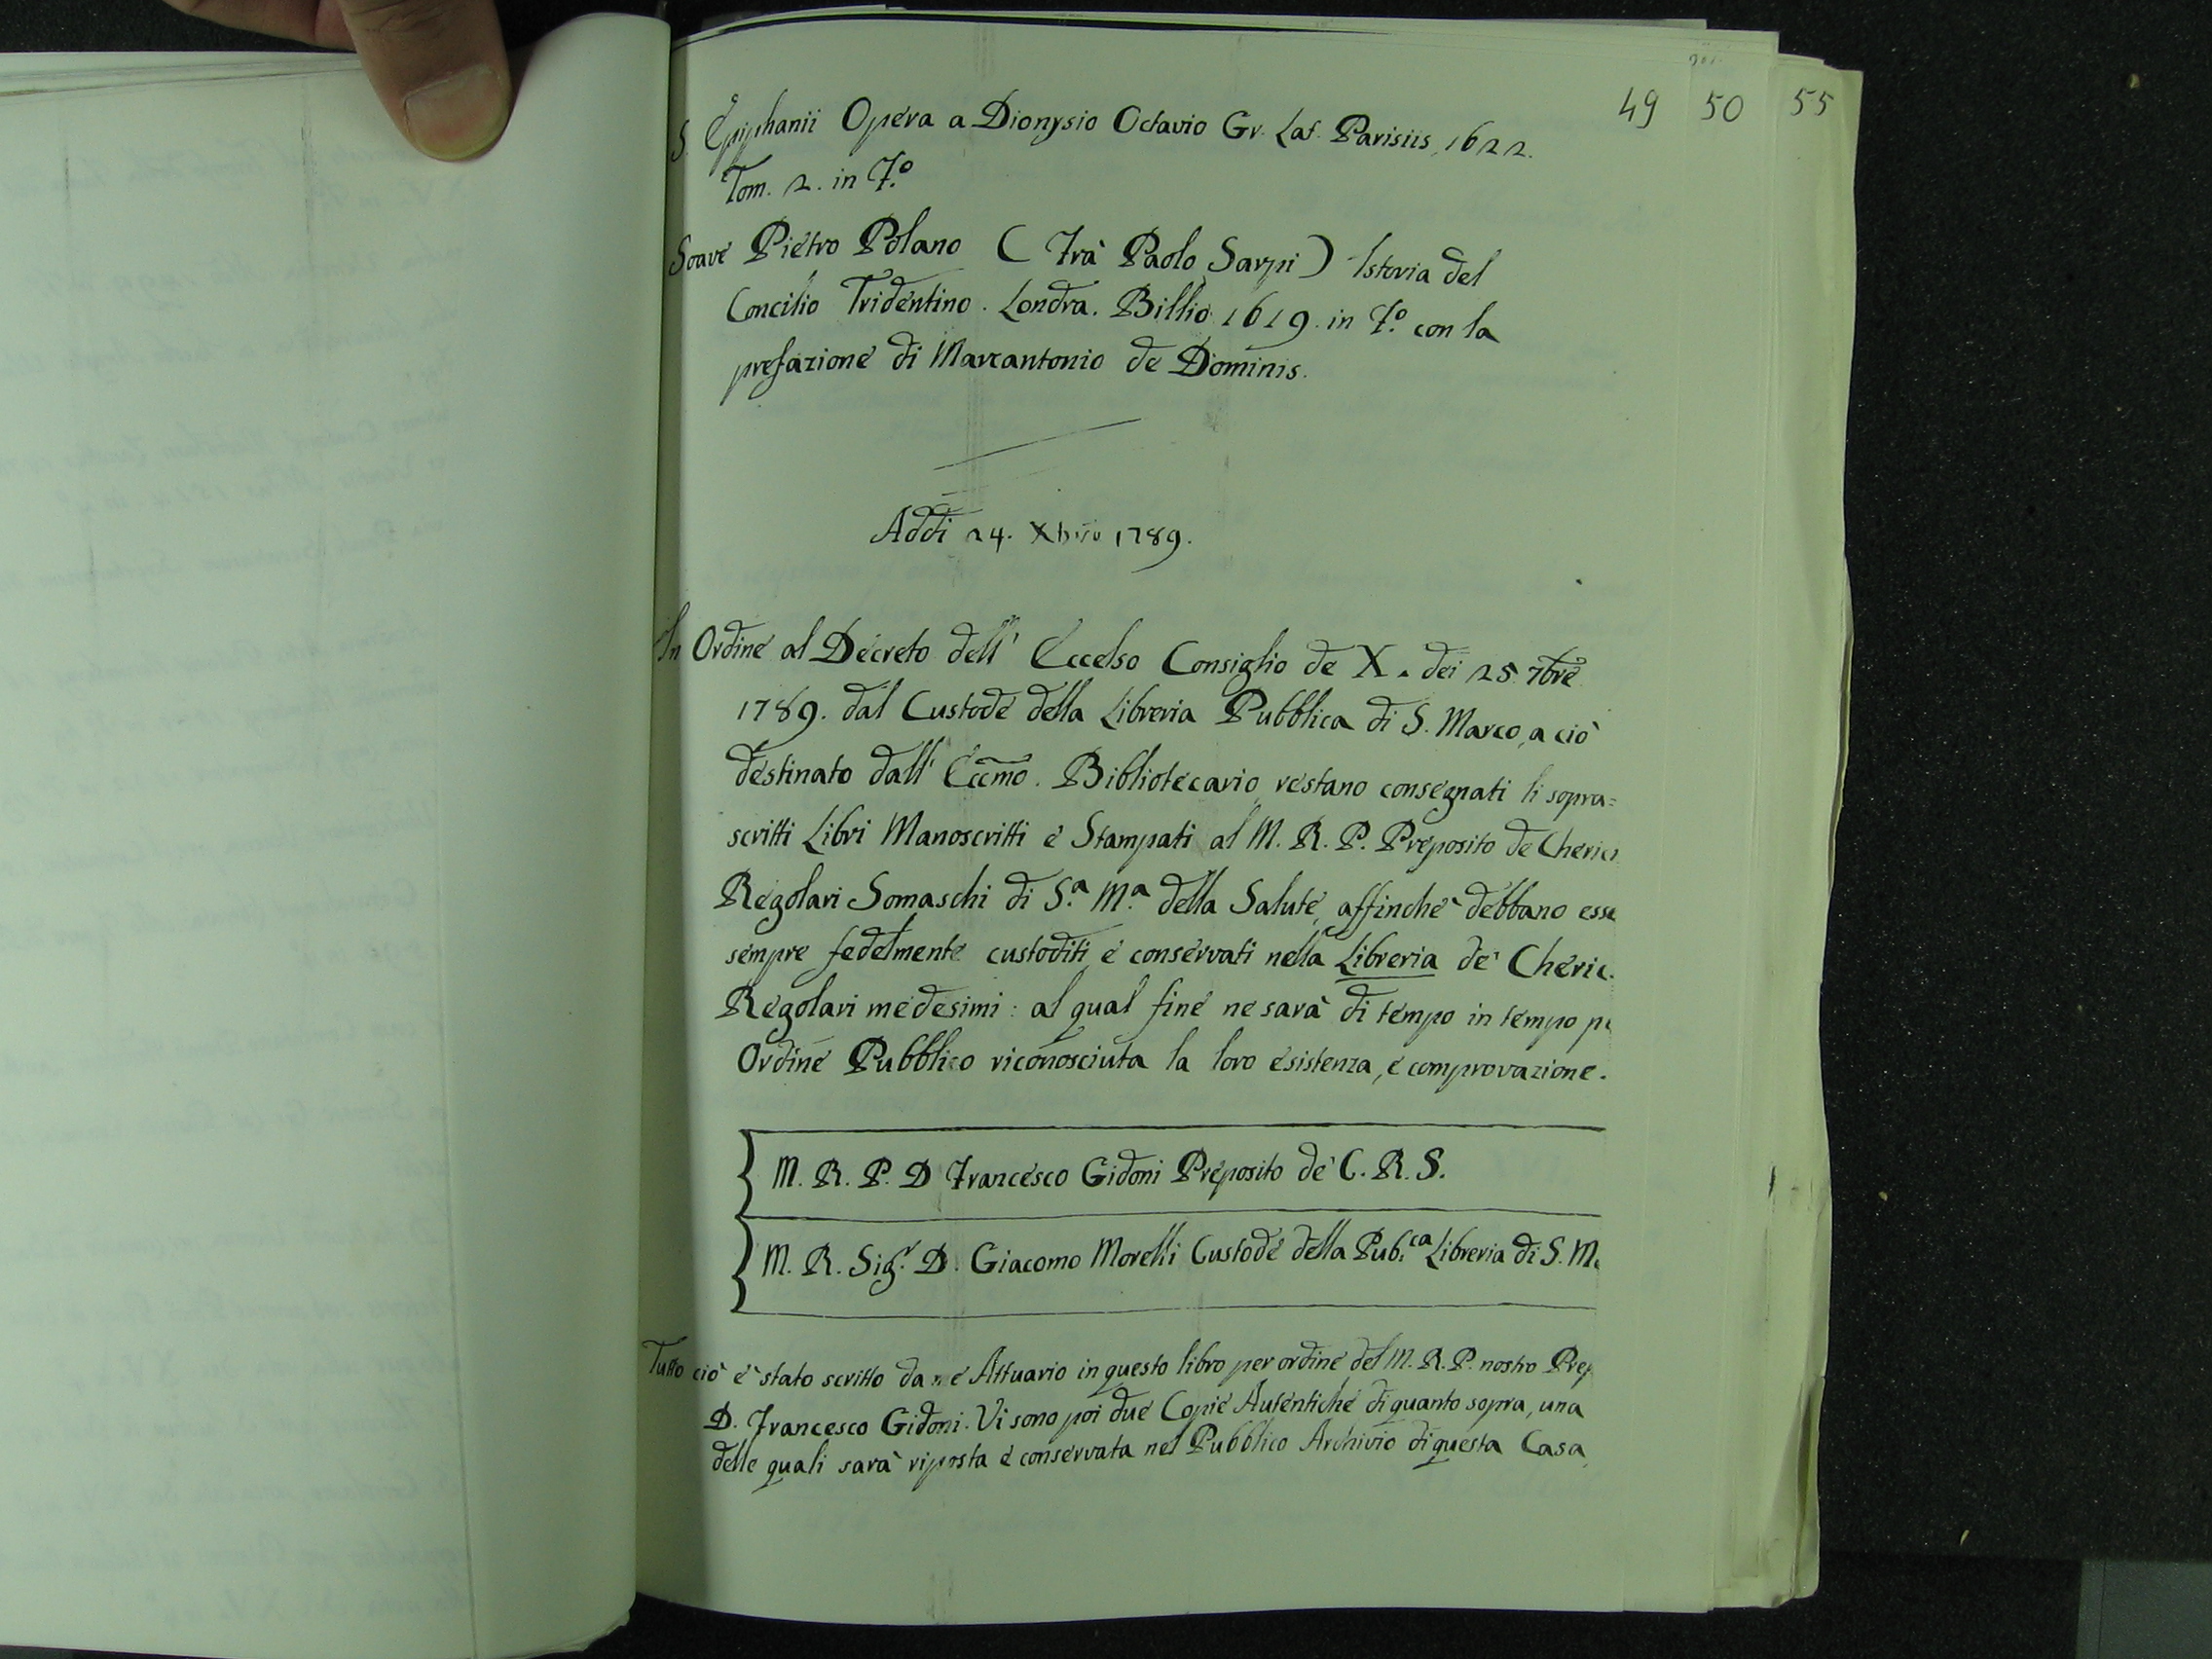 49 50 55
S. Epiphanii Opera a Dionysio Octavio Gr. Lat. Parisiis, 1622.
Tom. 2. in F.º
Soave Pietro Polano (Frà Paolo Sarpi) Istoria del
Concilio Tridentino. Londra. Billio 1619. in F.º con la
prefazione di Marcantonio de Dominis.
Addì 24. Xbre 1789.
In Ordine al Decreto dell' Eccelso Consiglio de X. dei 25. 7bre
1789. dal Custode della Libreria Pubblica di S. Marco, a ciò
destinato dall' Eccmo. Bibliotecario, restano consegnati li sopra=
scritti Libri Manoscritti e Stampati al M. R. P. Preposito de Cherici
Regolari Somaschi di S.a M.a della Salute, affinchè debbano esse
sempre fedelmente custoditi e conservati nella Libreria de' Cheric.
Regolari medesimi: al qual fine ne sarà di tempo in tempo pe
Ordine Pubblico riconosciuta la loro esistenza, e comprovazione.
M. R. P. D Francesco Gidoni Preposito de' C. R. S.
M. R. Sig.r D. Giacomo Morelli Custode della Pub.ca Libreria di S. M.
Tutto ciò è stato scritto da me Attuario in questo libro per ordine del M. R. P. nostro Prep
D. Francesco Gidoni. Vi sono poi due Copie Autentiche di quanto sopra, una
delle quali sarà riposta e conservata nel Pubblico Archivio di questa Casa,